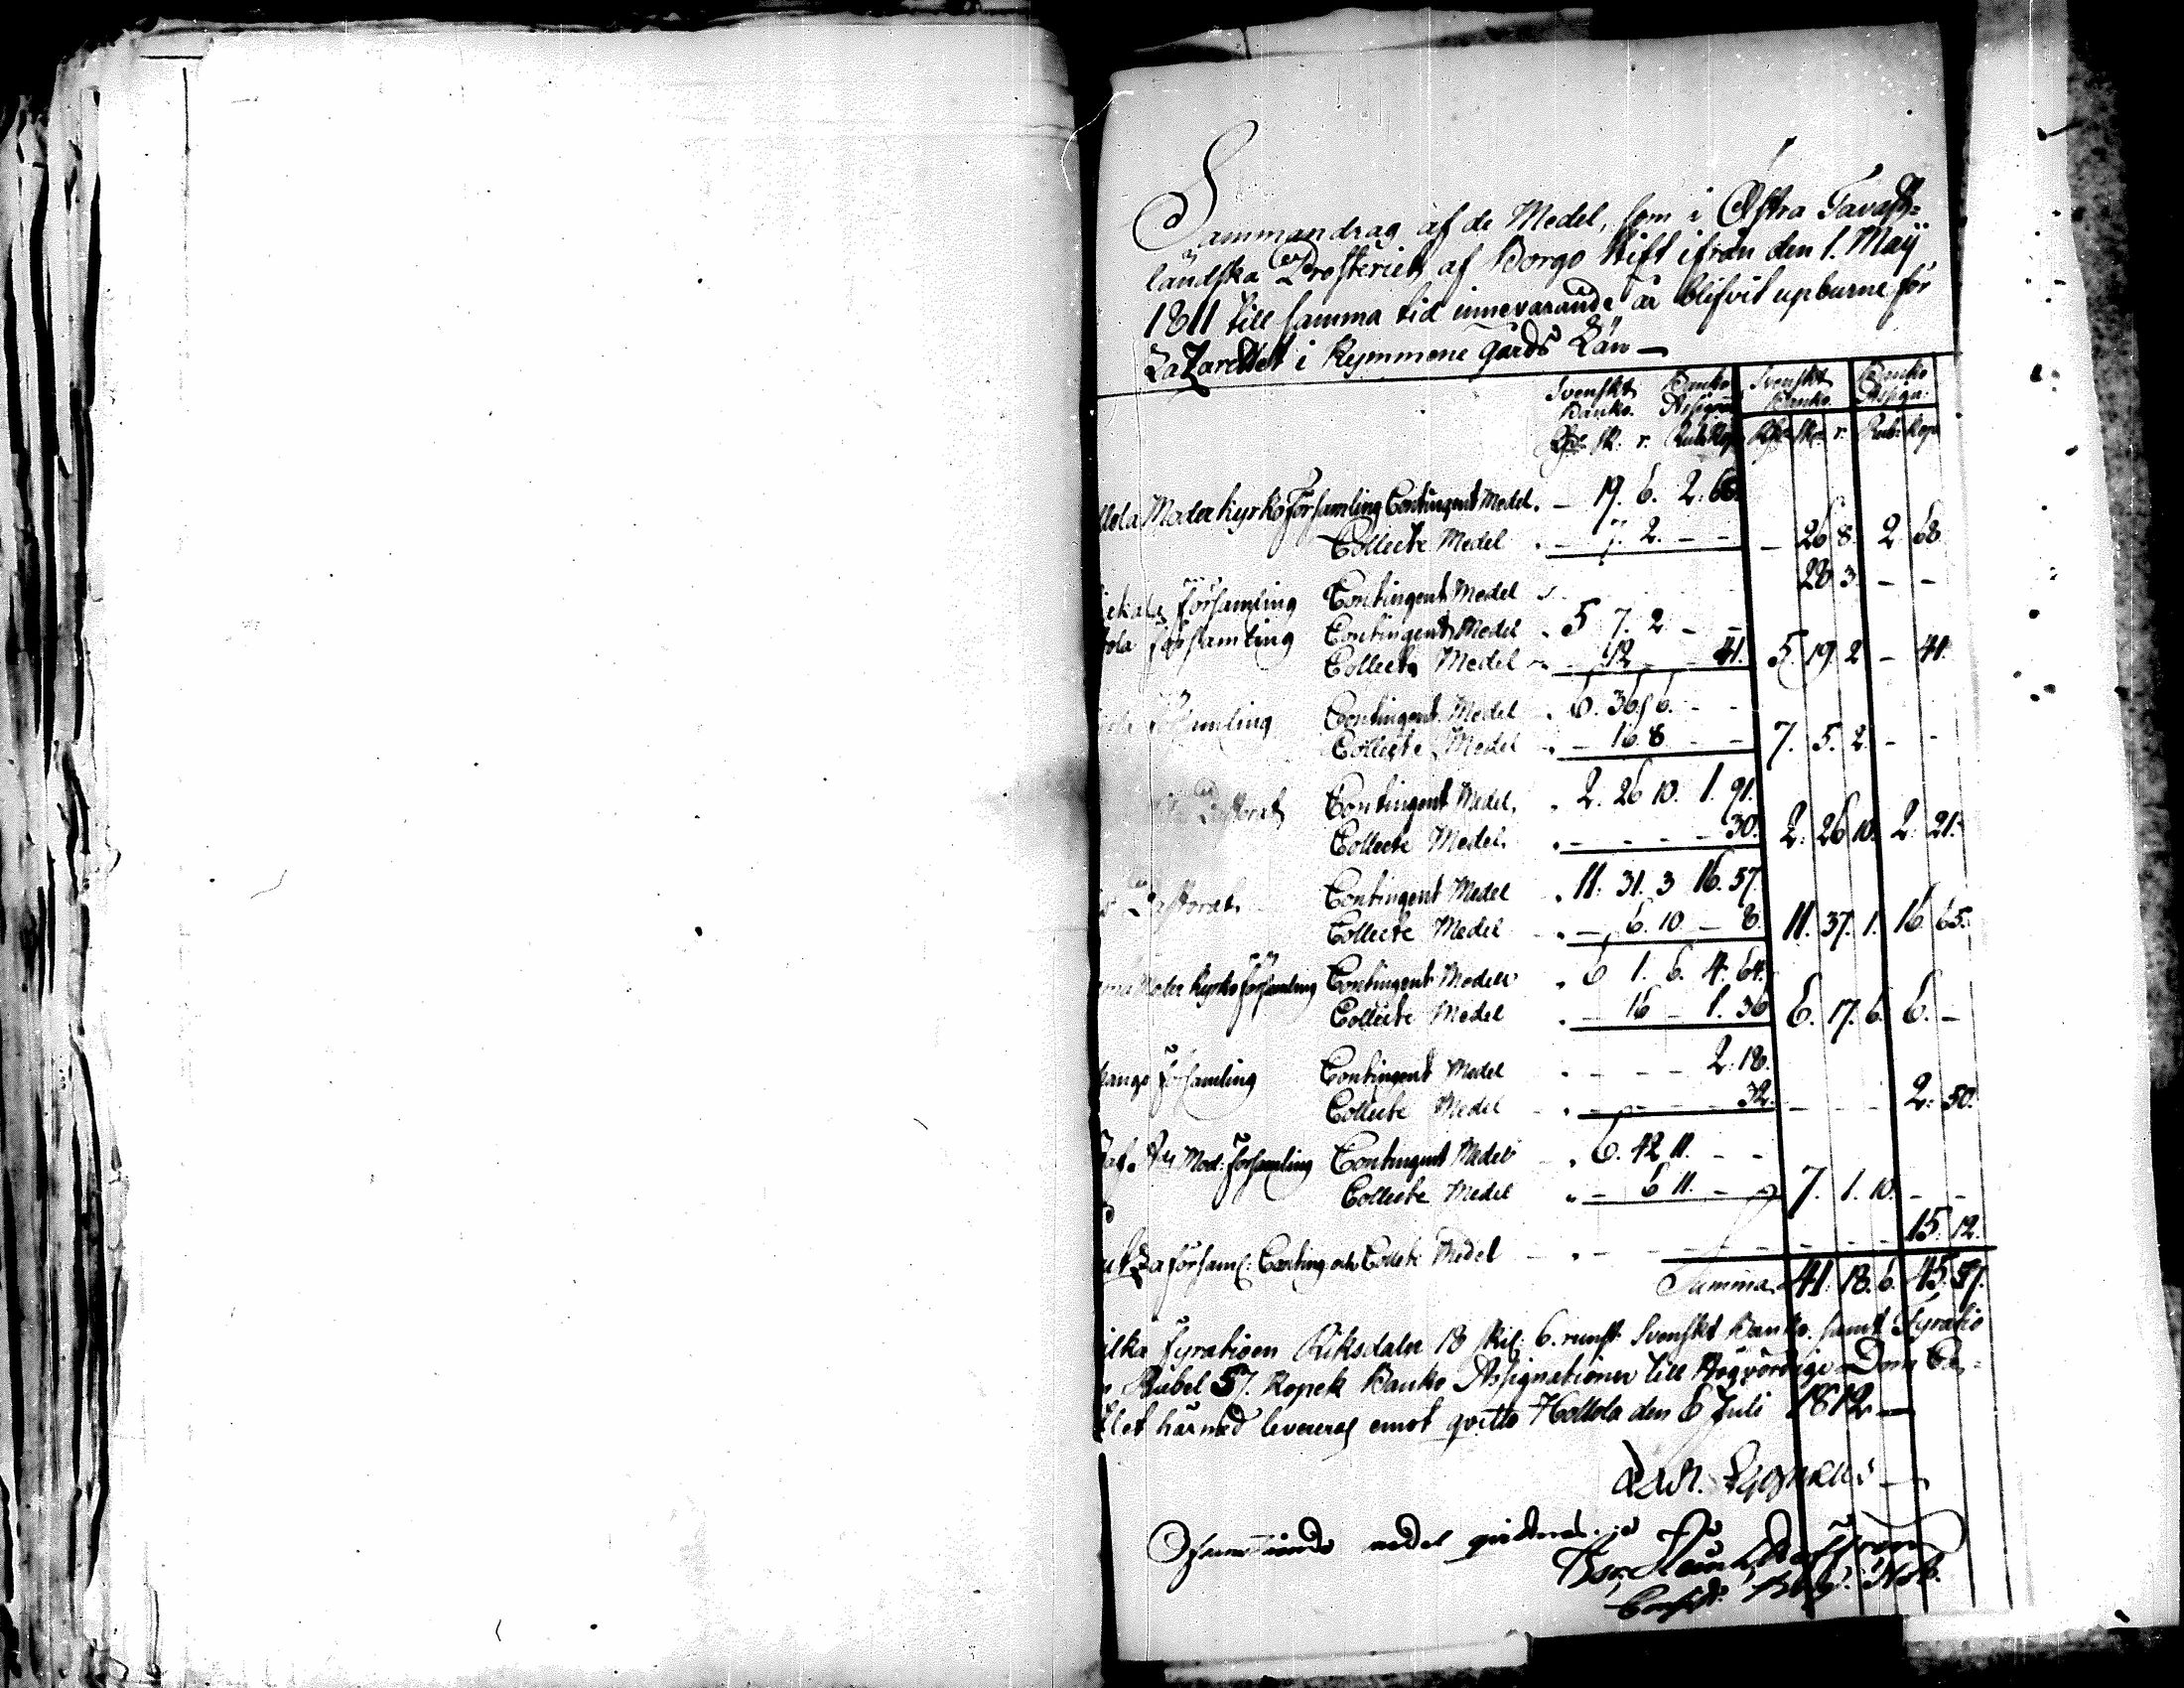 Sammandrag af de Medel, som i Östra Tavast=
ländska Prosteriet af Borgo Stift ifrån den 1. Maij
1811 till samma tid innevarande år blifvit upburne för
Lazarettet i Kymmene gårds Län —
Svenskt Banko. Banko Assign. Svenskt Banko. Banko Assign.
Rdr. sk. r. Rub. Kop. Rdr. sk. r. Rub. Kop.
llola Moderkyrko Församling Contingent Medel. — 19. 6. 2. 68.
Collecte Medel . — 7. 2. — — — 26 8. 2 68
Församling Contingent Medel 28 3 — —
ola församling Contingent Medel . 5 7. 2 — —
Collecte Medel — 12 — — 41. 5. 19. 2 — 41.
Församling Contingent Medel . 6. 36. 6. — —
Collecte Medel . — 16. 8 — — 7. 5. 2. — —
Pastorat Contingent Medel. . 2. 26 10. 1. 91.
Collecte Medel. . — — — — 30. 2. 26 10. 2. 21.
Pastorat. Contingent Medel . 11. 31. 3 16. 57.
Collecte Medel . — 6. 10 — 8. 11. 37. 1. 16 65.
Moder kyrko församling Contingent Medel . 6 1. 6. 4. 64.
Collecte Medel . — 16 — 1. 36 6. 17. 6. 6. —
lango församling Contingent Medel . — — — 2. 18.
Collecte Medel . — — — — 32. — — — 2. 50.
Mod: församling Contingent Medel . 6. 42 11. — —
Collecte Medel . — 6 11. — — 7. 1. 10. — —
församl: Conting och Collecte Medel — . — — — — — — — — 15. 12.
Summa 41. 18. 6. 45. 57.
ilka fyratioen Riksdaler 18 skil: 6. runst. Svenskt Banko. samt Fyratio
Rubel 57. Kopek Banko Assignationer till Högvördige Dom Ca=
tlet härmed levereras emot qvitto Hollola den 6 Juli 1812 —
Cygnæus —
Ofvanstående medel qvitteras
Consist: Not.